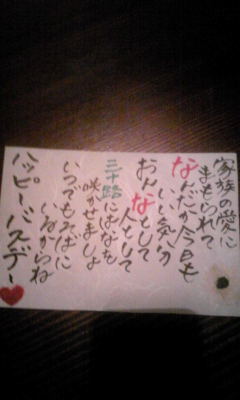 家族の愛に
まもられて
なんだか今日も
いい気分
おんなとして
人として
三十路にはなを
咲かせましょ
いつでもそばに
いるからね
ハッピーバスデー